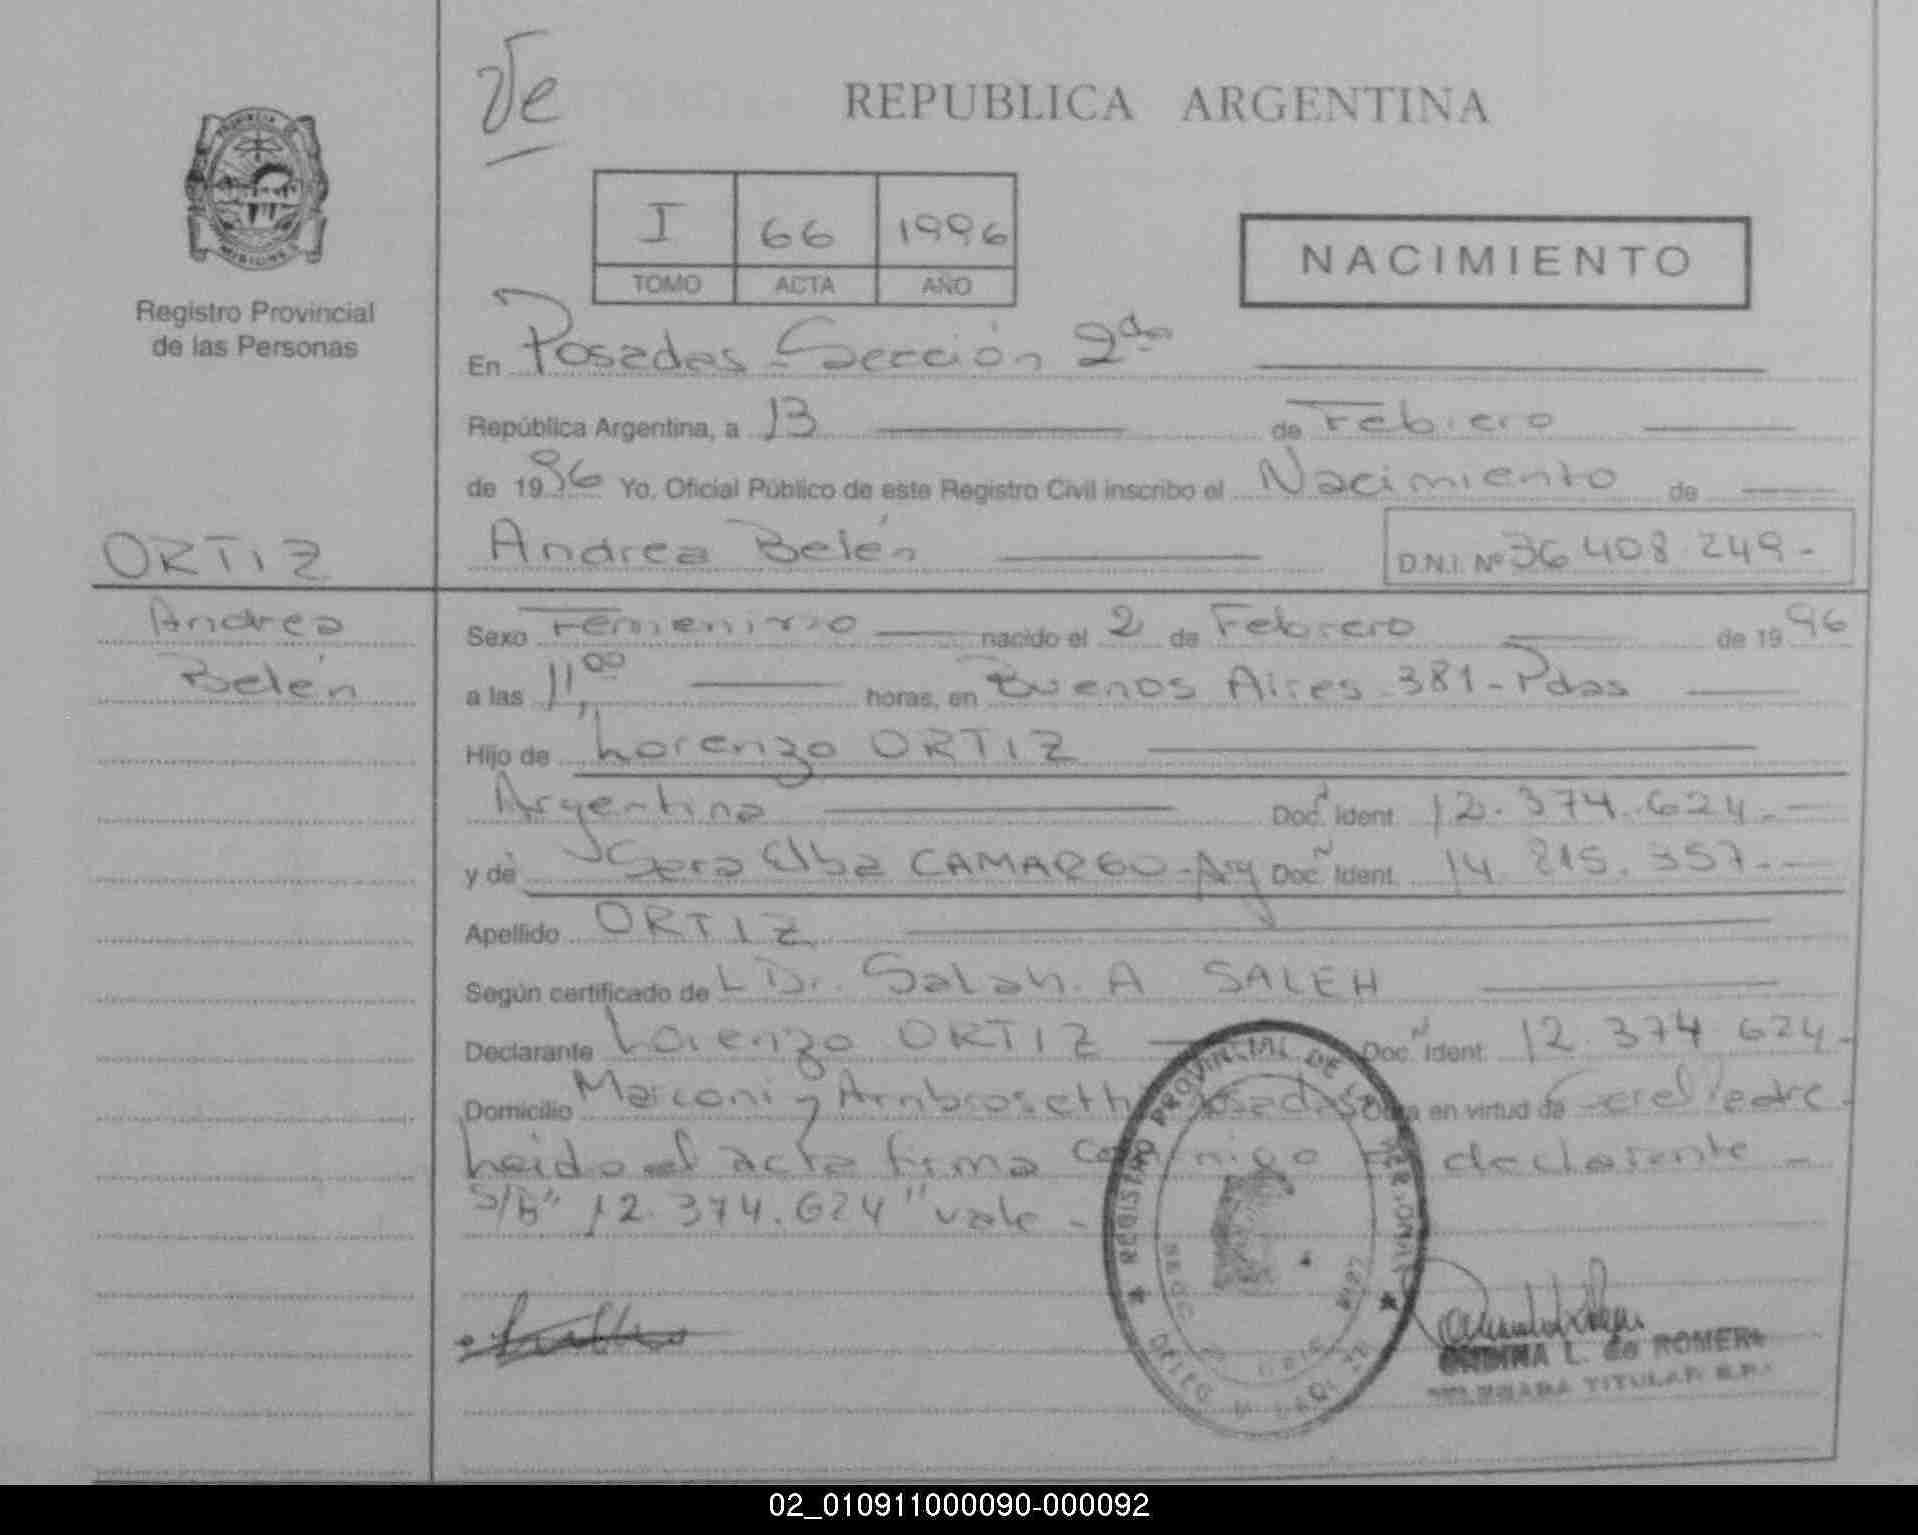 Ve
REPUBLICA ARGENTINA
I 66 1996
TOMO ACTA AÑO
NACIMIENTO
Registro Provincial
de las Personas
En Posadas Sección 2da
República Argentina, a 13 de Febrero
de 1996 Yo, Oficial Público de este Registro Civil inscribo el Nacimiento de
ORTIZ
Andrea Belén D.N.I. Nº 36 408 249-
Andrea
Belén
Sexo Femenino nacido el 2 de Febrero de 1996
a las 11,00 horas, en Buenos Aires 381-Pdas
Hijo de Lorenzo ORTIZ
Argentina Doc. Ident. 12.374.624-
y de Sara Elba CAMARGO-Arg Doc. Ident. 14.215.357-
Apellido ORTIZ
Según certificado de L Dr. Salah. A SALEH
Declarante Lorenzo ORTIZ Doc. Ident. 12.374 624-
Domicilio Marconi y Ambrosetti Posadas Obra en virtud de Ser el Padre-
Leida el acta firma conmigo el declarante -
S/B "12.374.624" vale -
REGISTRO PROVINCIAL DE LAS PERSONAS
ONDINA L. de ROMERO
DELEGADA TITULAR R.P.
02_010911000090-000092